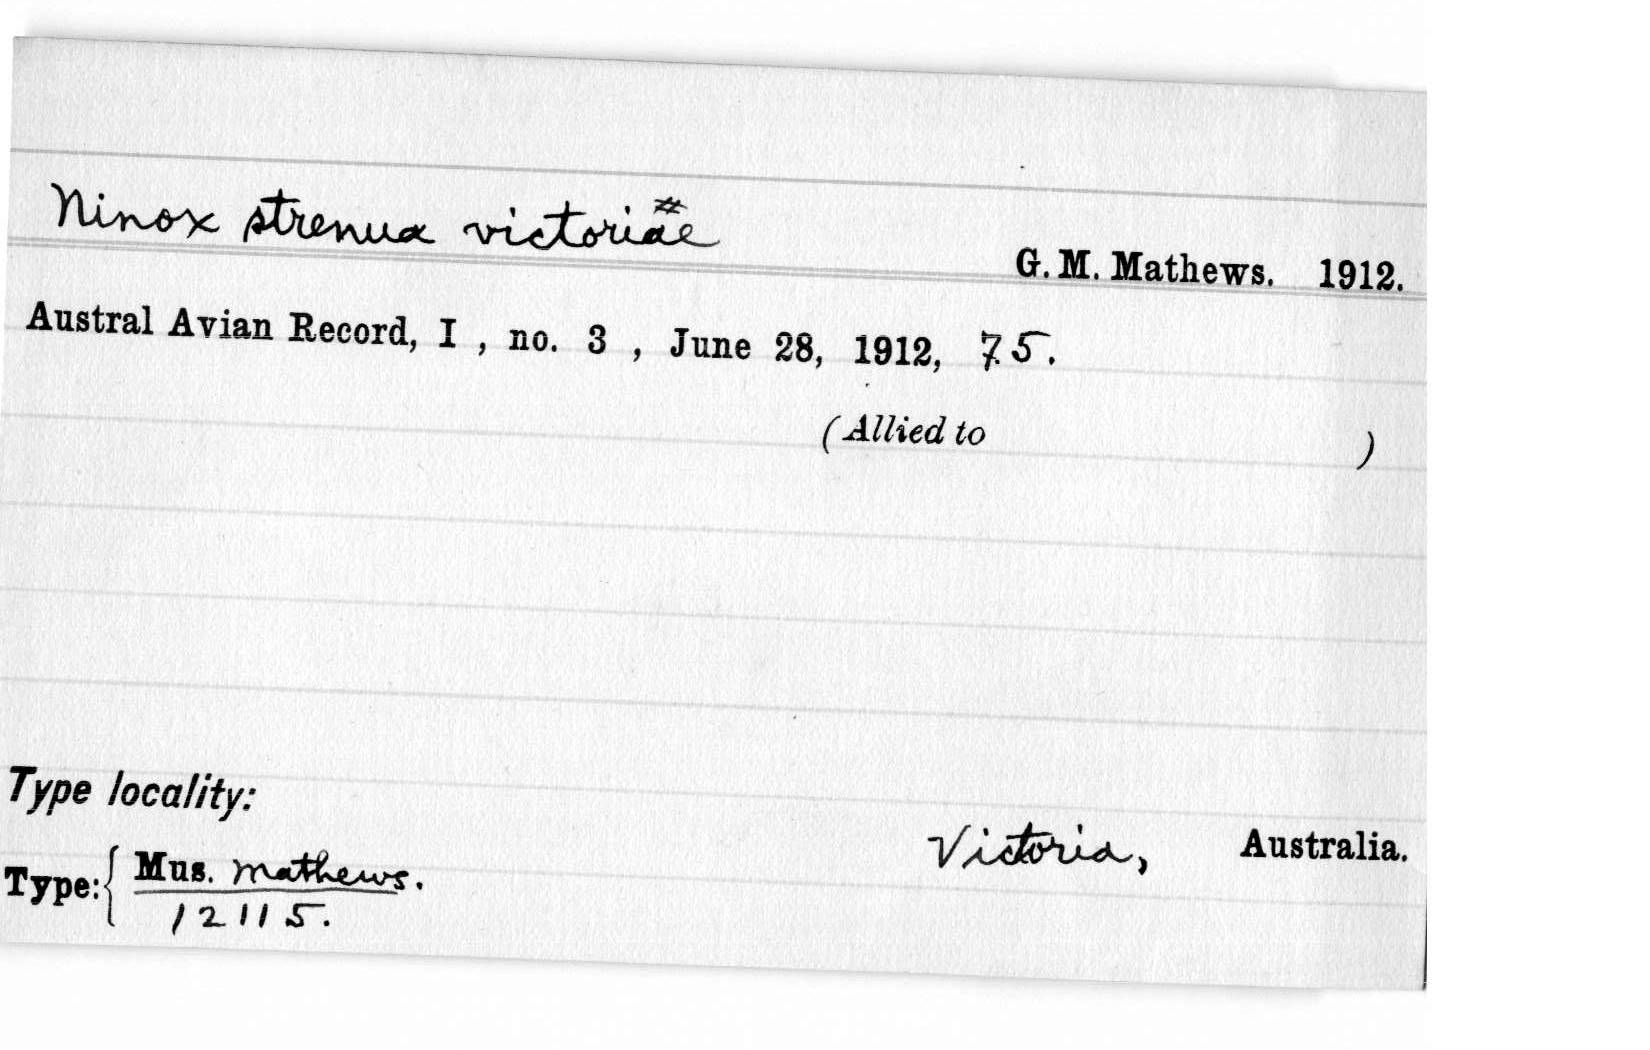 Ninox strenua victoriae #
G. M. Mathews. 1912.
Austral Avian Record, I , no. 3 , June 28, 1912, 75.
(Allied to )
Type locality:
Victoria, Australia.
Type: { Mus. Mathews.
12115.